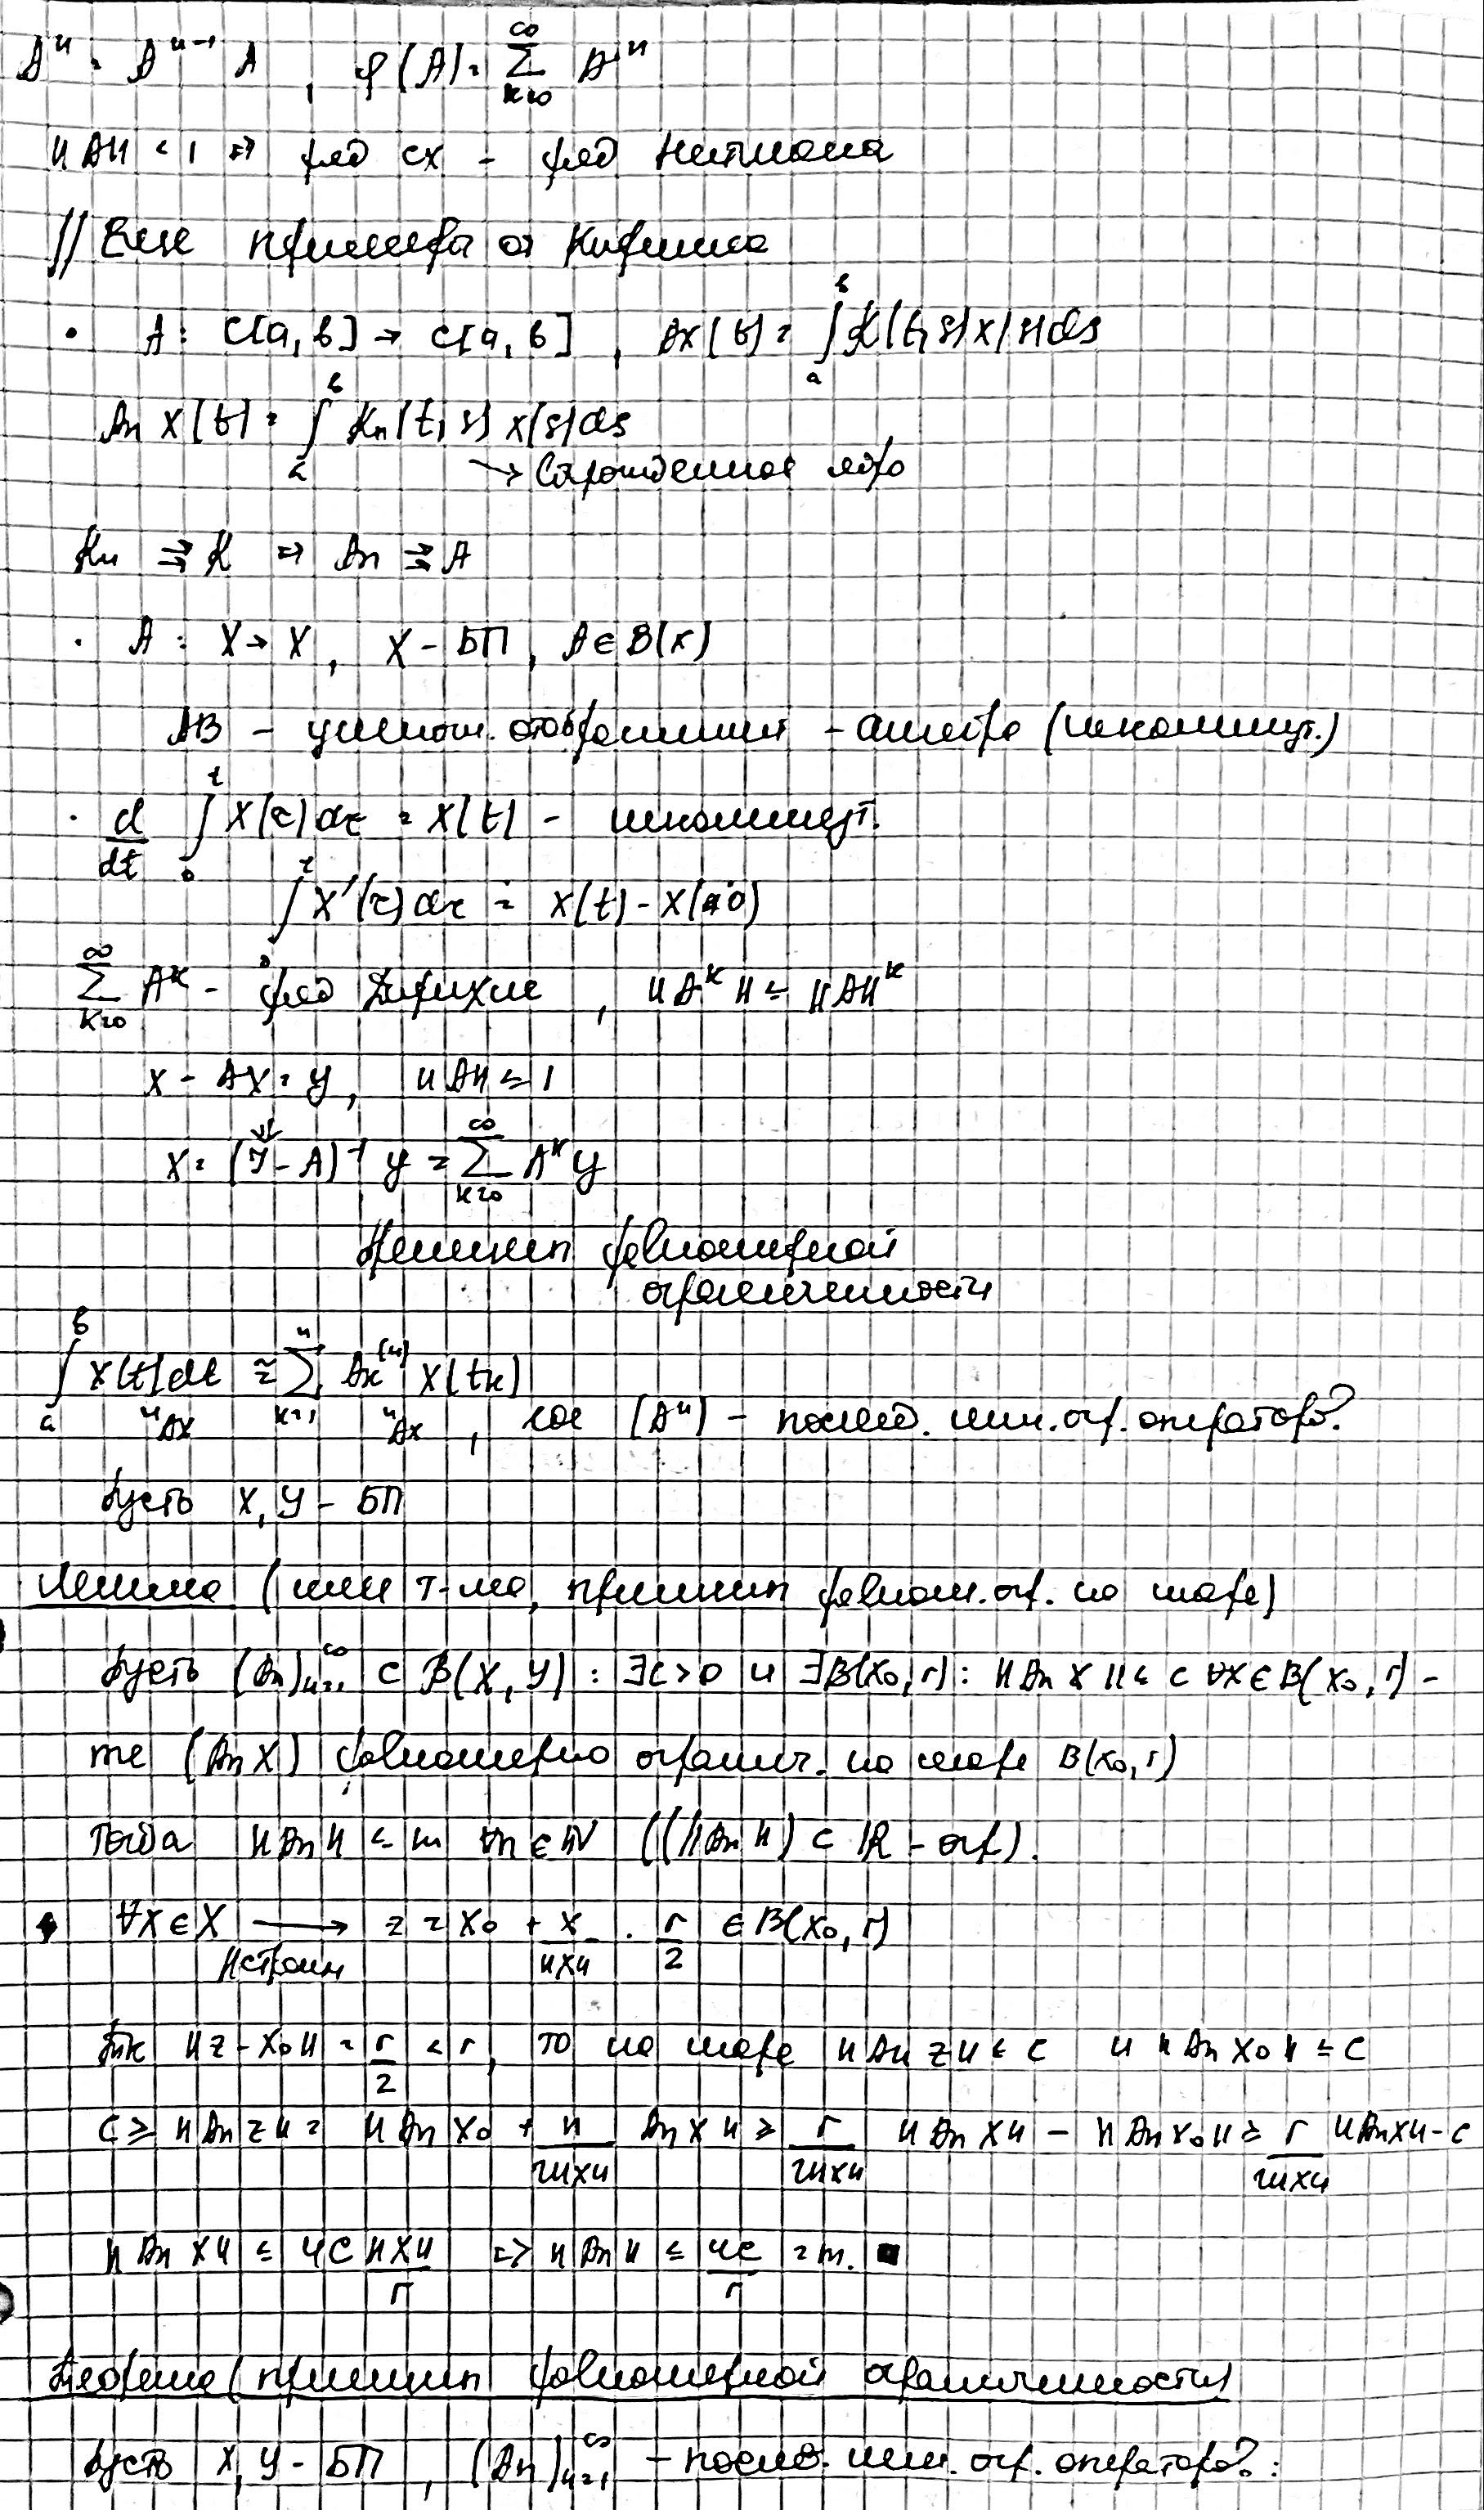 Aⁿ = Aⁿ⁻¹ A , φ(A) = ∑_{k=0}^{∞} Aⁿ
‖A‖ < 1 ⇒ ряд сх – ряд Неймана
// Еще примера от
• A: C[a,b] → C[a,b] , Ax(t) = ∫_a^b K(t,s)x(s)ds
Aₙx(t) = ∫_a^b Kₙ(t,s)x(s)ds
→ Вырожденное ядро
Kₙ ⇉ K ⇒ Aₙ ⇉ A
• A: X → X, X – БП, A ∈ B(X)
AB – умнож. отображения – алгебра (некоммут.)
• d/dt ∫_0^t x(τ)dτ = x(t) – некоммут.
∫_0^t x'(τ)dτ = x(t) – x(0)
∑_{k=0}^{∞} A^k – ряд Дирихле , ‖A^k‖ ≤ ‖A‖^k
x – Ax = y, ‖A‖ ≤ 1
x = (I – A)⁻¹ y = ∑_{k=0}^{∞} A^k y
Принцип равномерной
ограниченности
∫_a^b x(t)dt ≈ ∑_{k=1}^{n} A_k^{(n)} x(t_k)
"Ax "Ax , где (Aⁿ) – послед. лин. огр. операторов.
Пусть X, Y – БП
Лемма (или т-ма, принцип равном. огр. на шаре)
Пусть (Aₙ)_{n=1}^{∞} ⊂ B(X,Y) : ∃c>0 и ∃B(x₀,r) : ‖Aₙx‖ ≤ c ∀x ∈ B(x₀,r) –
те (Aₙx) равномерно огранич. на шаре B(x₀,r)
Тогда ‖Aₙ‖ ≤ m ∀n ∈ ℕ ((‖Aₙ‖) ⊂ ℝ – огр).
• ∀x ∈ X → z = x₀ + x/‖x‖ · r/2 ∈ B(x₀,r)
построим
Тк ‖z – x₀‖ = r/2 < r, то на шаре ‖Aₙz‖ ≤ c и ‖Aₙx₀‖ ≤ c
c ≥ ‖Aₙz‖ = ‖Aₙx₀ + r/2‖x‖ Aₙx‖ ≥ r/2‖x‖ ‖Aₙx‖ – ‖Aₙx₀‖ ≥ r/2‖x‖ ‖Aₙx‖ – c
‖Aₙx‖ ≤ 4c‖x‖/r ⇒ ‖Aₙ‖ ≤ 4c/r = m. ■
Теорема (принцип равномерной ограниченности)
Пусть X, Y – БП , (Aₙ)_{n=1}^{∞} – послед. лин. огр. операторов: